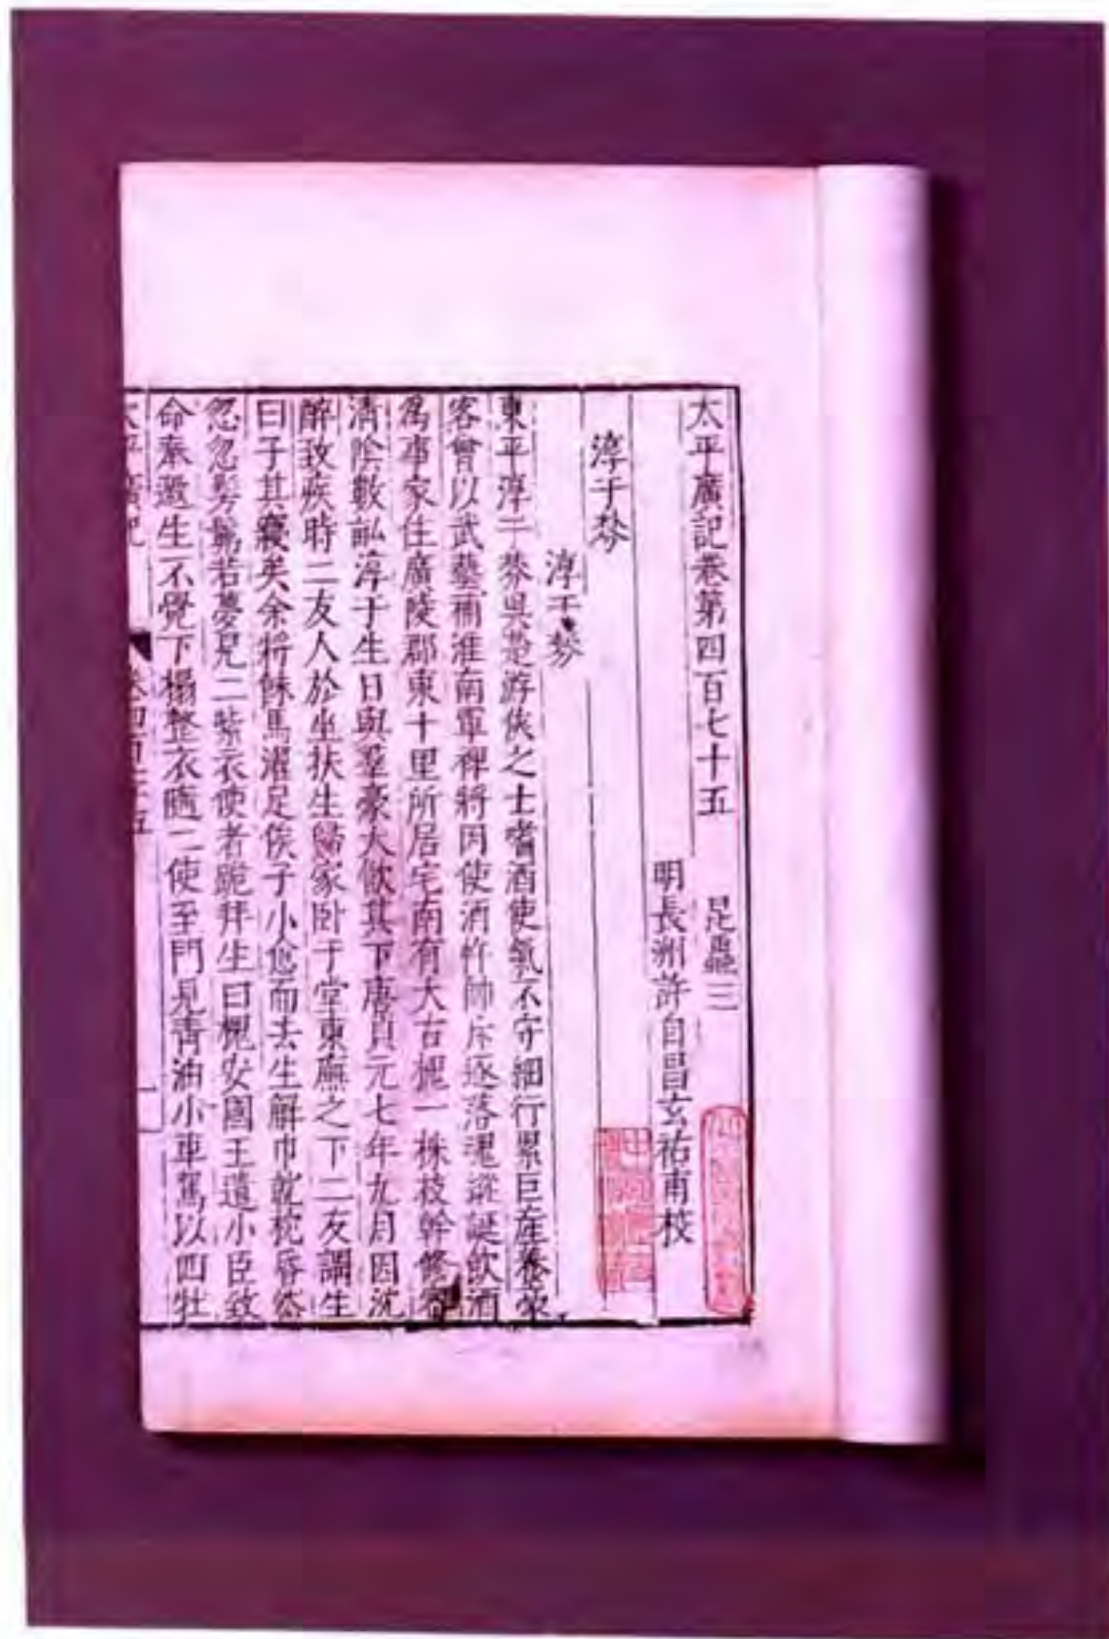 太平廣記卷第四百七十五 昆蟲三
明長洲許自昌玄祐甫校
淳于棼
淳于棼
東平淳于棼吳楚游俠之士嗜酒使氣不守細行累巨産養豪
客曾以武藝補淮南軍裨將因使酒忤帥斥逐落魄縱誕飲酒
爲事家住廣陵郡東十里所居宅南有大古槐一株枝幹修密
清陰數畝淳于生日與羣豪大飲其下唐貞元七年九月因沈
醉致疾時二友人於坐扶生歸家卧于堂東廡之下二友謂生
曰子其寢矣余將餗馬濯足俟子小愈而去生解巾就枕昏然
忽忽髣髴若夢見二紫衣使者跪拜生曰槐安國王遣小臣致
命奉邀生不覺下榻整衣隨二使至門見青油小車駕以四牡
太平廣記 卷四百七十五 一